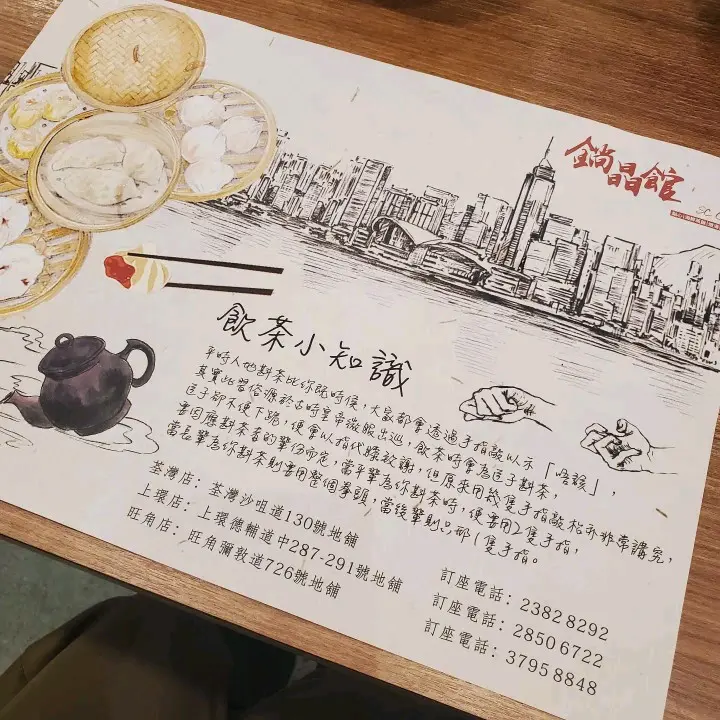 鋿晶館
飲茶小知識
平時人哋斟茶比你既時候，大家都會透過手指敲以示「唔該」，
其實此習俗源於古時皇帝微服出巡，飲茶時會為臣子斟茶，
臣子卻不便下跪，便會以指代膝敬謝，但原來用幾隻手指敲枱亦非常講究，
要因應斟茶者的輩份而定，當平輩為你斟茶時，便要用2隻手指，
當長輩為你斟茶則要用整個拳頭，當後輩則只郁1隻手指。
荃灣店：荃灣沙咀道130號地舖 訂座電話：2382 8292
上環店：上環德輔道中287-291號地舖 訂座電話：2850 6722
旺角店：旺角彌敦道726號地舖 訂座電話：3795 8848